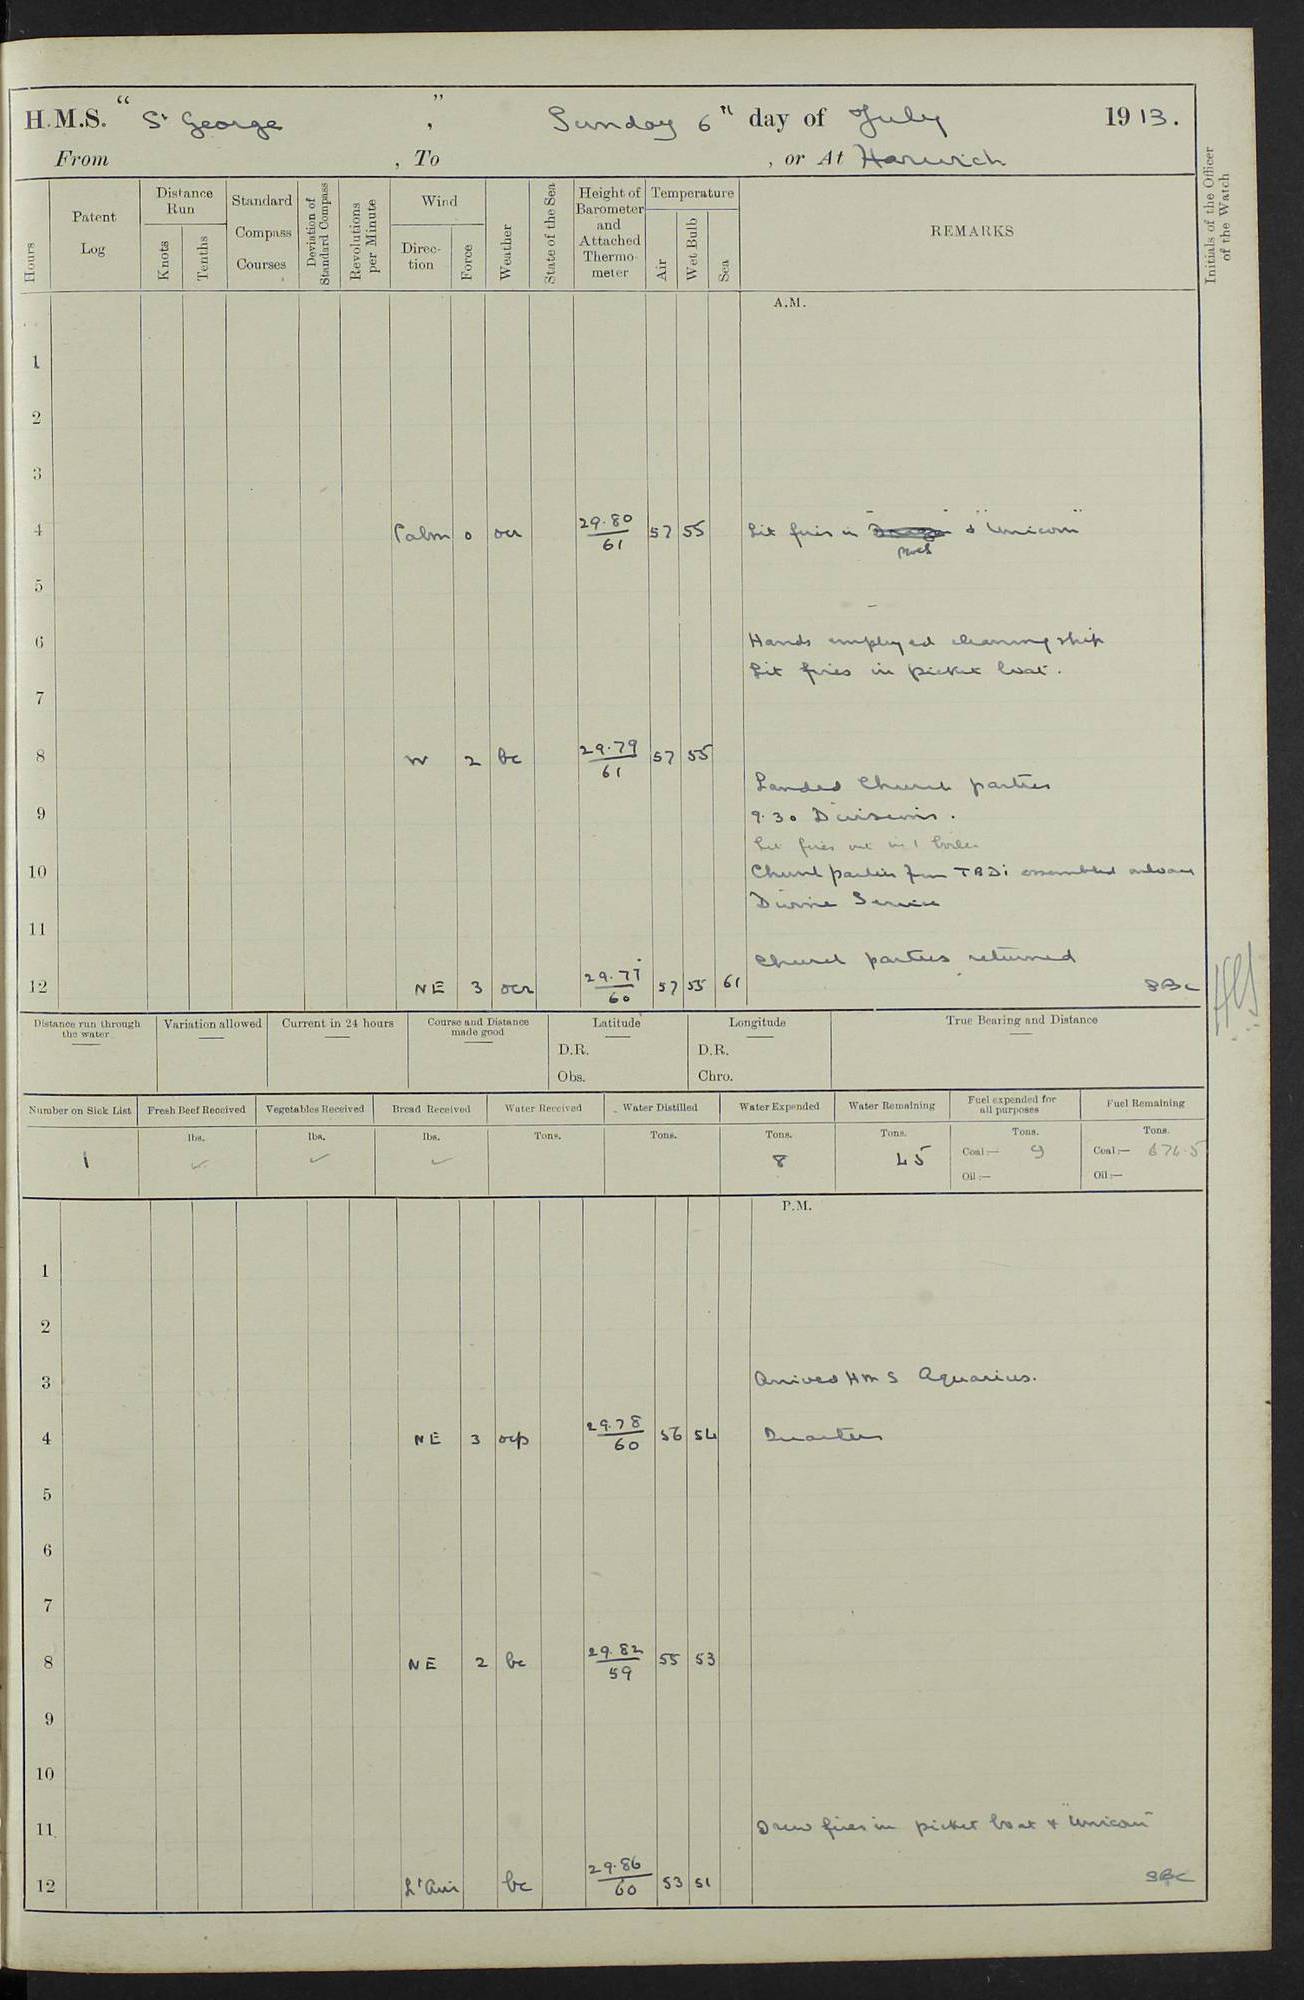 H.M.S. “ St George ”, Sunday 6th day of July 1913.
From , To , or At Harwich
Hours
Patent Log
Distance Run
Knots
Tenths
Standard Compass Courses
Deviation of Standard Compass
Revolutions per Minute
Wind
Direction
Force
Weather
State of the Sea
Height of Barometer and Attached Thermometer
Temperature
Air
Wet Bulb
Sea
REMARKS
Initials of the Officer of the Watch
A.M.
1
2
3
4 Calm 0 ocr 29.80/61 57 55 Lit fires in & "Unicorn"
5
6 Hands employed cleaning ship
Lit fires in picket boat.
7
8 W 2 bc 29.79/61 57 55
Landed Church parties
9 9.30 Divisions.
Let fires out in 1 boiler
10 Church parties from TBDs assembled onboard
Divine Service
11
Church parties returned
12 NE 3 ocr 29.77/60 57 55 61 SBC
Distance run through the water
Variation allowed
Current in 24 hours
Course and Distance made good
Latitude
D.R.
Obs.
Longitude
D.R.
Chro.
True Bearing and Distance
Number on Sick List
Fresh Beef Received
Vegetables Received
Bread Received
Water Received
Water Distilled
Water Expended
Water Remaining
Fuel expended for all purposes
Fuel Remaining
lbs. lbs. lbs. Tons. Tons. Tons. Tons. Tons. Tons.
1 ✓ ✓ ✓ 8 45 Coal:— 9 Coal:— 676.5
Oil:— Oil:—
P.M.
1
2
3 Arrived HMS Aquarius.
4 NE 3 ocp 29.78/60 56 54 Quarters
5
6
7
8 NE 2 bc 29.82/59 55 53
9
10
11 Drew fires in picket boat & "Unicorn"
12 Lt Airs bc 29.86/60 53 51 SBC